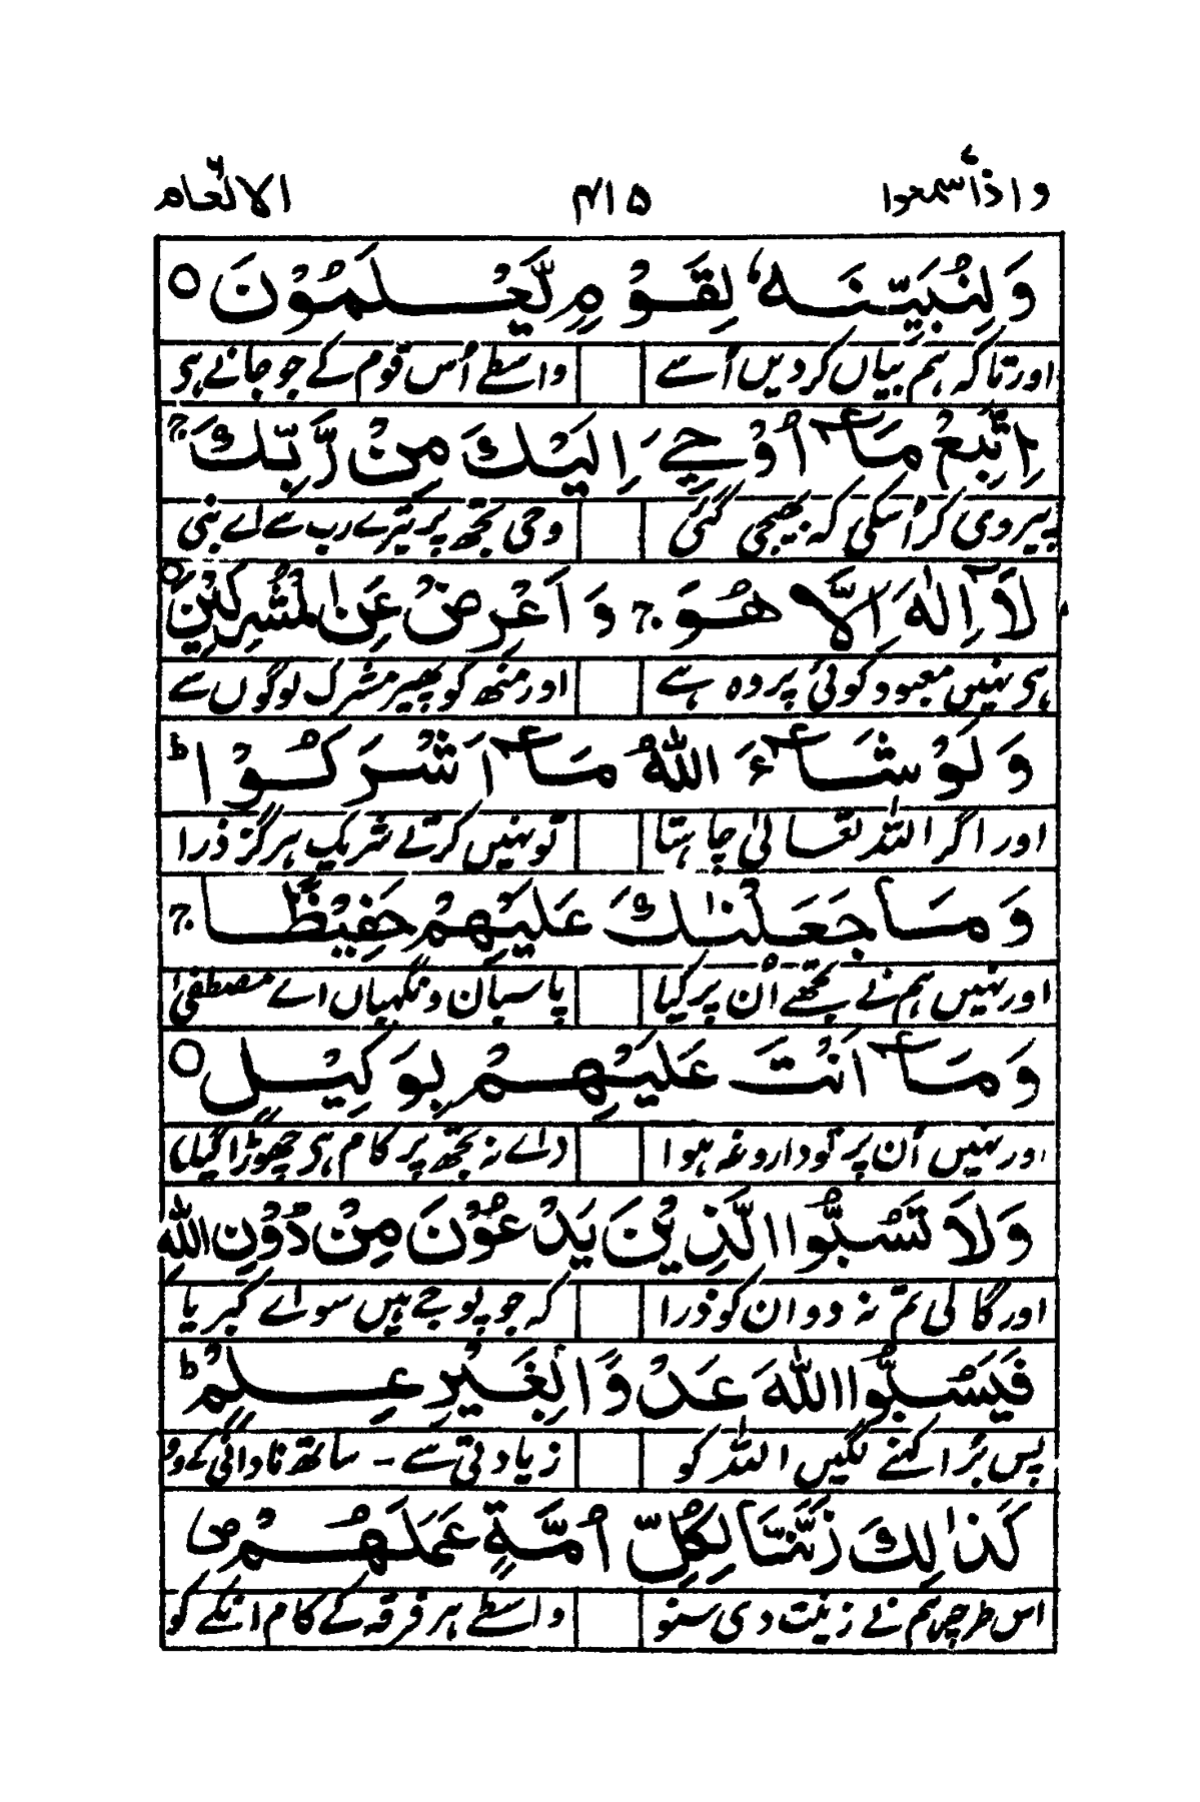 واذا سمعوا ۴۱۵ الانعام
وَلِنُبَيِّنَهٗ لِقَوْمٍ يَّعْلَمُوْنَ ○
اور تا کہ ہم بیاں کردیں اُسے واسطے اُس قوم کے جو جانے ہی
اِتَّبِعْ مَآ اُوْحِيَ اِلَيْكَ مِنْ رَّبِّكَ ج
پیروی کر اُسکی کہ بھیجی گئی وحی تجھ پر تیرے رب سے اے نبی
لَآ اِلٰهَ اِلَّا هُوَ ج وَاَعْرِضْ عَنِ الْمُشْرِكِيْنَ ○
ہی نہیں معبود کوئی پر وہ ہے اور منھ کو پھیر مشرک لوگوں سے
وَلَوْ شَآءَ اللّٰهُ مَآ اَشْرَكُوْا ط
اور اگر اللہ تعالیٰ چاہتا تو نہیں کرتے شریک ہرگز ذرا
وَمَا جَعَلْنٰكَ عَلَيْهِمْ حَفِيْظًا ج
اور نہیں ہم نے تجھے اُن پر کیا پاسبان و نگہباں اے مصطفیٰ
وَمَآ اَنْتَ عَلَيْهِمْ بِوَكِيْلٍ ○
اور نہیں اُن پر تو داروغہ ہوا نہ تجھ پر کام ہی چھوڑا گیا
وَلَا تَسُبُّوا الَّذِيْنَ يَدْعُوْنَ مِنْ دُوْنِ اللّٰهِ
اور گالی تم نہ دو ان کو ذرا کہ جو پوجے ہیں سواے کبریا
فَيَسُبُّوا اللّٰهَ عَدْوًا بِغَيْرِ عِلْمٍ ط
پس بُرا کہنے لگیں اللہ کو زیادتی سے - ساتھ نادانی کے وُ
كَذٰلِكَ زَيَّنَّا لِكُلِّ اُمَّةٍ عَمَلَهُمْ ص
اس طرح ہم نے زینت دی سنو واسطے ہر فرقہ کے کام انکے کو